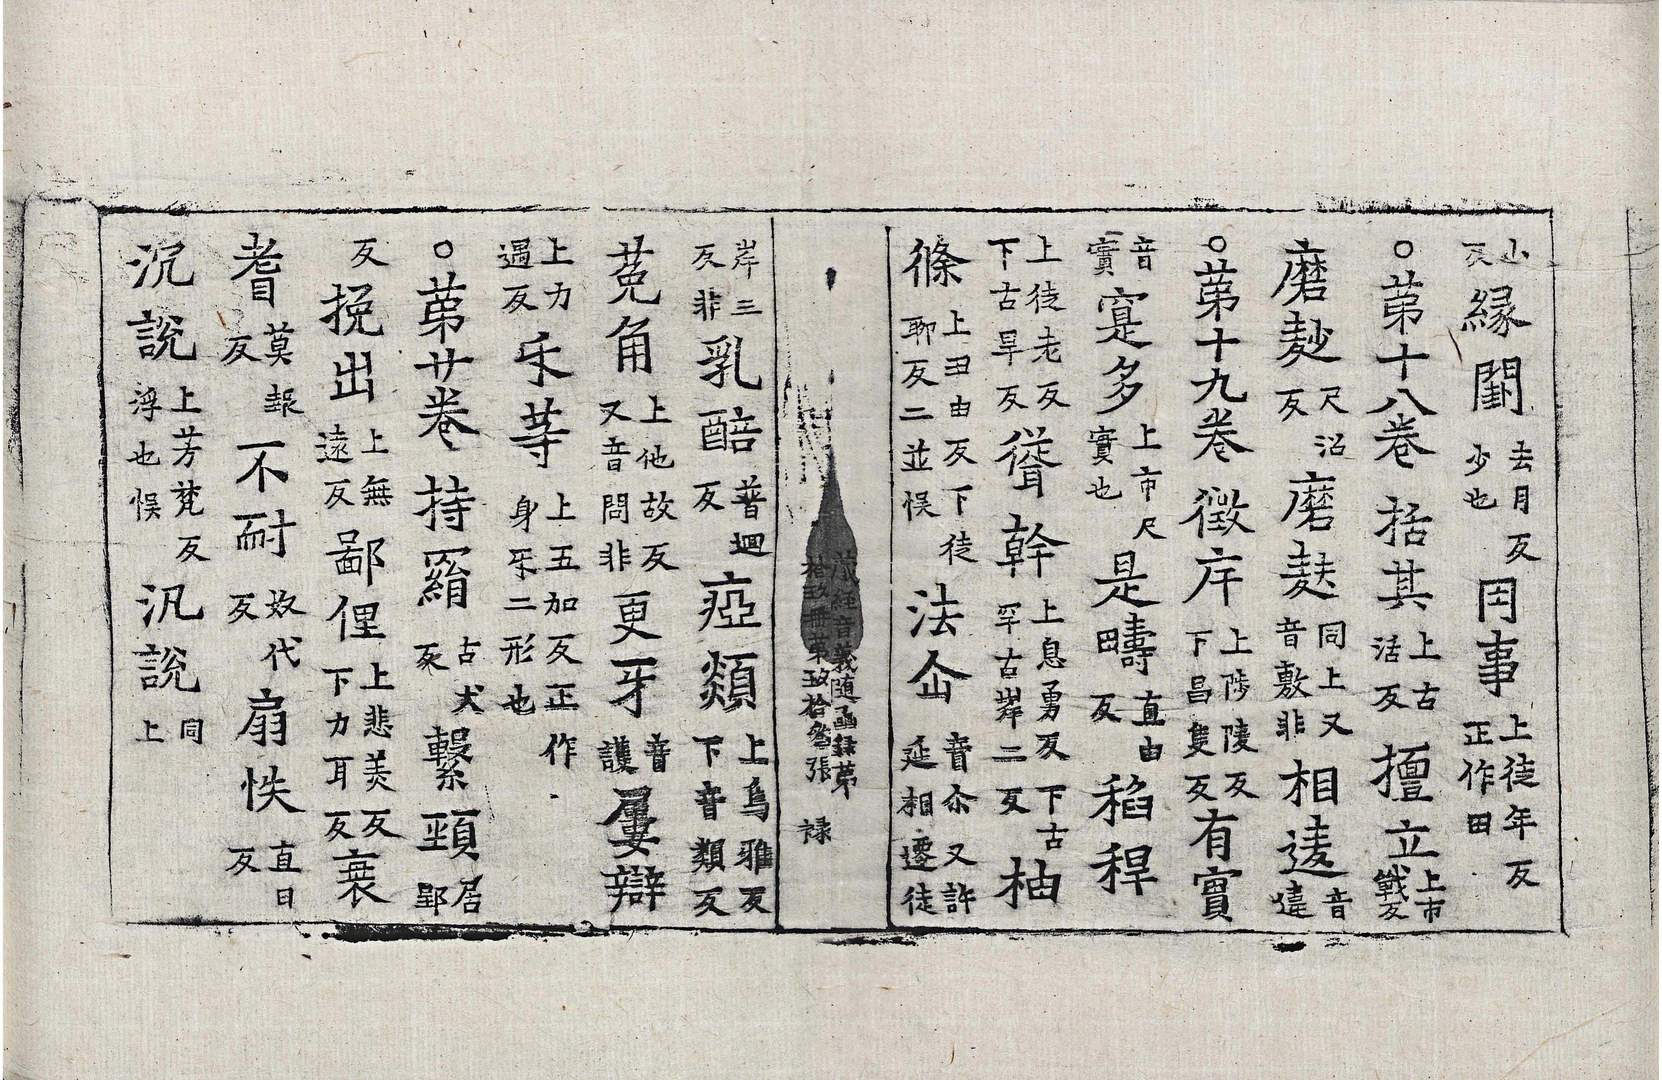 山反縁闠去月反少也囝事上徒年反正作田
○苐十八卷括其上古活反擅立上市戰反
磨麨尺沼反磨麩同上又音敷非相逺音違
○苐十九卷徵㡿上陟陵反下昌隻反有實
音實寔多上市尺實也是疇直由反稻稈
上徒老反下古旱反聳幹上息勇反下古罕古岸二反柚
條上由反下徒聊反二並悮法㕘音尒又許延相遷徒
藏經音義随凾録苐拾玖冊苐玖拾叄張 禄
岸三反非乳醅普迴反瘂纇上烏雅反下音類反
菟角上他故反又音問非更牙音護屢辯
上力遇反㸦等上五加反正作身牙二形也
○苐廿卷持羂古犬反繫頸居郢
反挽出上無遠反鄙俚上悲美反下力耳反衰
耆莫報反不耐奴代反扇帙直日反
沉説上芳梵反浮也悮汎説同上